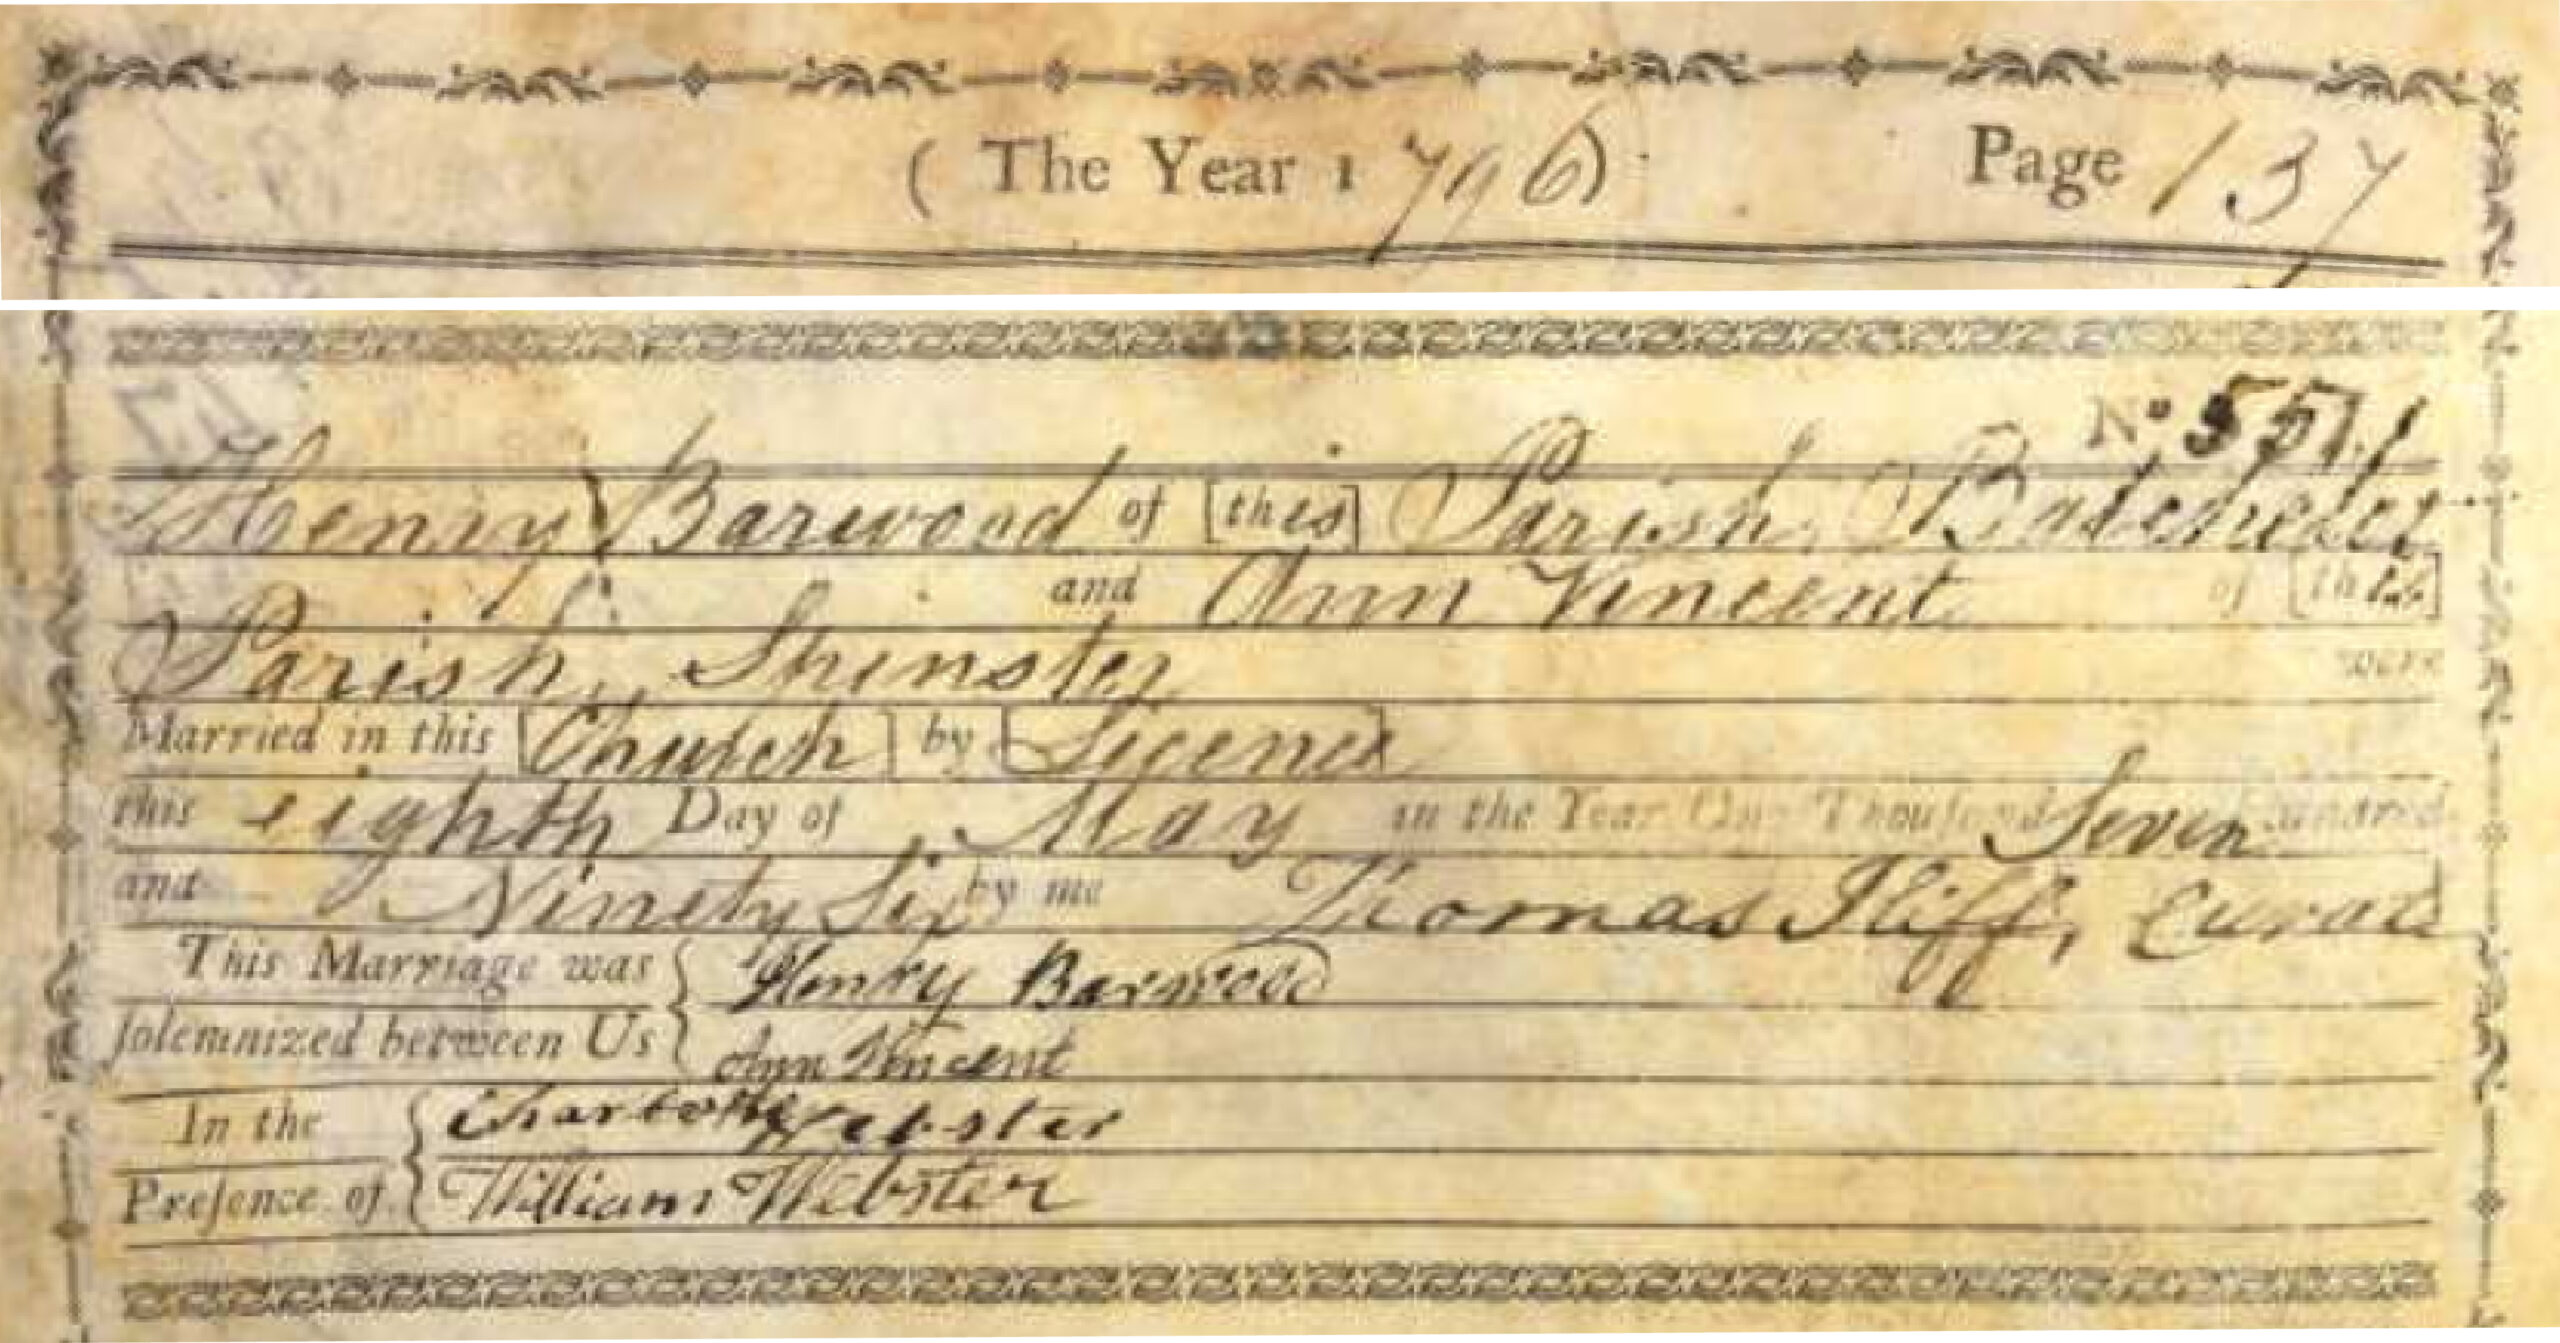 ( The Year 1796) Page 137
No. 551
Henry Barwood of [this] Parish, Batchelor
and Ann Vincent of [this]
Parish, Spinster were
Married in this [Church] by [Licence]
this eighth Day of May in the Year One Thousand Seven Hundred
and Ninety Six by me Thomas Iliff, Curate
This Marriage was { Henry Barwood
ſolemnized between Us { Ann Vincent
In the { Charlotte Webster
Preſence of { William Webster